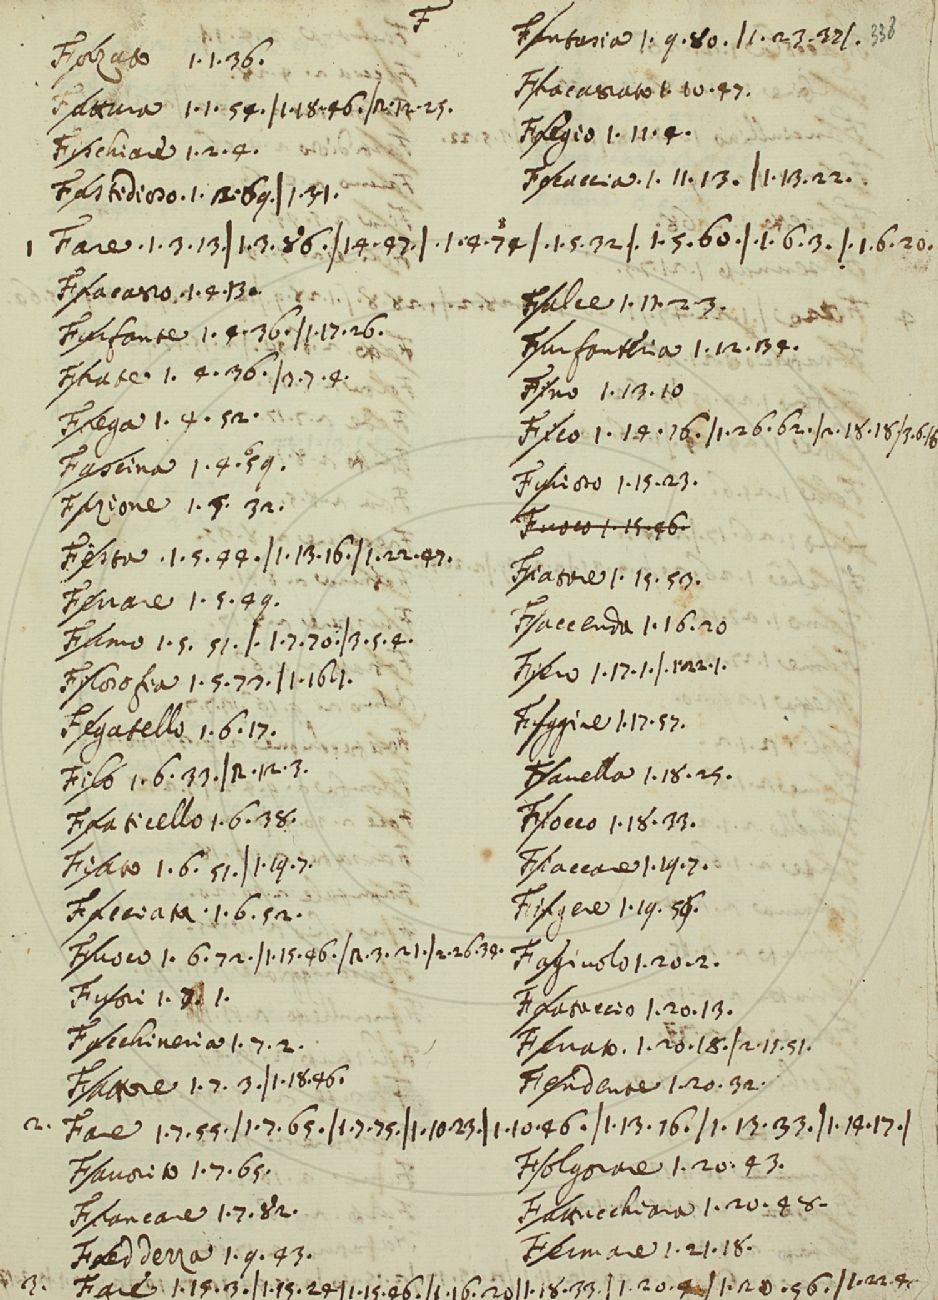 F
338
Forzato 1.1.36.
Fattura 1.1.54./1.18.46./2.12.25.
Fischiare 1.2.4.
Fastidioso.1.12.69./1.31.
1 Fare.1.3.13./1.3.86./1.4.47./.1.4.74/.1.5.32/.1.5.60./.1.6.3./.1.6.20.
Fracasso.1.4.13.
Furfante 1.4.36./1.17.26.
Frate 1.4.36./3.7.4.
Frega 1.4.52.
Fascina 1.4.59.
Fazione 1.5.32.
Festa.1.5.44./1.13.16./1.22.47.
Ferrare 1.5.49.
Fumo 1.5.51./.1.7.70./3.5.4.
Filosofia 1.5.77./1.16.1.
Fegatello 1.6.17.
Filo 1.6.33./2.12.3.
Fraticello 1.6.38.
Fiato 1.6.51./1.19.7.
Frecciata.1.6.52.
Fuoco 1.6.72./1.15.46./2.3.21./2.26.34.
Fuori 1.7.1.
Facchineria 1.7.2.
Fattore 1.7.3./1.18.46.
2. Fare 1.7.55./1.7.65./1.7.75./1.10.23./1.10.46./1.13.16./1.13.33./1.14.17./
Favorito 1.7.65.
Francare 1.7.82.
Freddezza 1.9.43.
3. Fare 1.15.3./1.15.24/1.15.46./1.16.20/1.18.33./1.20.4/1.20.56./1.22.4
Fantasia 1.9.80./1.23.32/.
Fracassato 1.10.47.
Fregio 1.11.4.
Focaccia.1.11.13./1.13.22.
Falce 1.11.23.
Furfanteria 1.12.34.
Fino 1.13.10
Fico 1.14.16./1.26.62./2.18.18/3.6.18
Furioso 1.15.23.
Fuoco 1.15.46.
Fiatare 1.15.53.
Faccenda 1.16.20
Fiero 1.17.1./.1.22.1.
Fuggire 1.17.57.
Favella 1.18.25.
Fiocco 1.18.33.
Fiaccare 1.19.7.
Fingere 1.19.56.
Fagiuolo 1.20.2.
Fratoccio 1.20.13.
Ferrato.1.20.18./2.15.51.
Fendente 1.20.32.
Folgorare 1.20.43.
Fattucchiara 1.20.48.
Fermare 1.21.18.